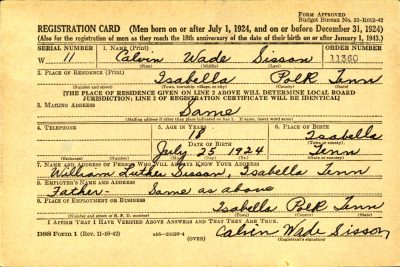 FORM APPROVED
Budget Bureau No. 33-R012-42
REGISTRATION CARD (Men born on or after July 1, 1924, and on or before December 31, 1924)
(Also for the registration of men as they reach the 18th anniversary of the date of their birth on or after January 1, 1943.)
SERIAL NUMBER 1. NAME (Print) ORDER NUMBER
W 11 Calvin Wade Sisson 11360
(First) (Middle) (Last)
2. PLACE OF RESIDENCE (Print)
Isabella Polk Tenn
(Number and street) (Town, township, village, or city) (County) (State)
[THE PLACE OF RESIDENCE GIVEN ON LINE 2 ABOVE WILL DETERMINE LOCAL BOARD
JURISDICTION; LINE 2 OF REGISTRATION CERTIFICATE WILL BE IDENTICAL]
3. MAILING ADDRESS
Same
[Mailing address if other than place indicated on line 2. If same, insert word same]
4. TELEPHONE 5. AGE IN YEARS 6. PLACE OF BIRTH
Isabella
DATE OF BIRTH (Town or county)
July 25 1924 Tenn
(Exchange) (Number) (Mo.) (Day) (Yr.) (State or country)
7. NAME AND ADDRESS OF PERSON WHO WILL ALWAYS KNOW YOUR ADDRESS
William Luther Sisson, Isabella Tenn
8. EMPLOYER'S NAME AND ADDRESS
Father - Same as above
9. PLACE OF EMPLOYMENT OR BUSINESS
Isabella Polk Tenn
(Number and street or R. F. D. number) (Town) (County) (State)
I AFFIRM THAT I HAVE VERIFIED ABOVE ANSWERS AND THAT THEY ARE TRUE.
DSS Form 1 (Rev. 11-16-42) (OVER) Calvin Wade Sisson
(Registrant's signature)